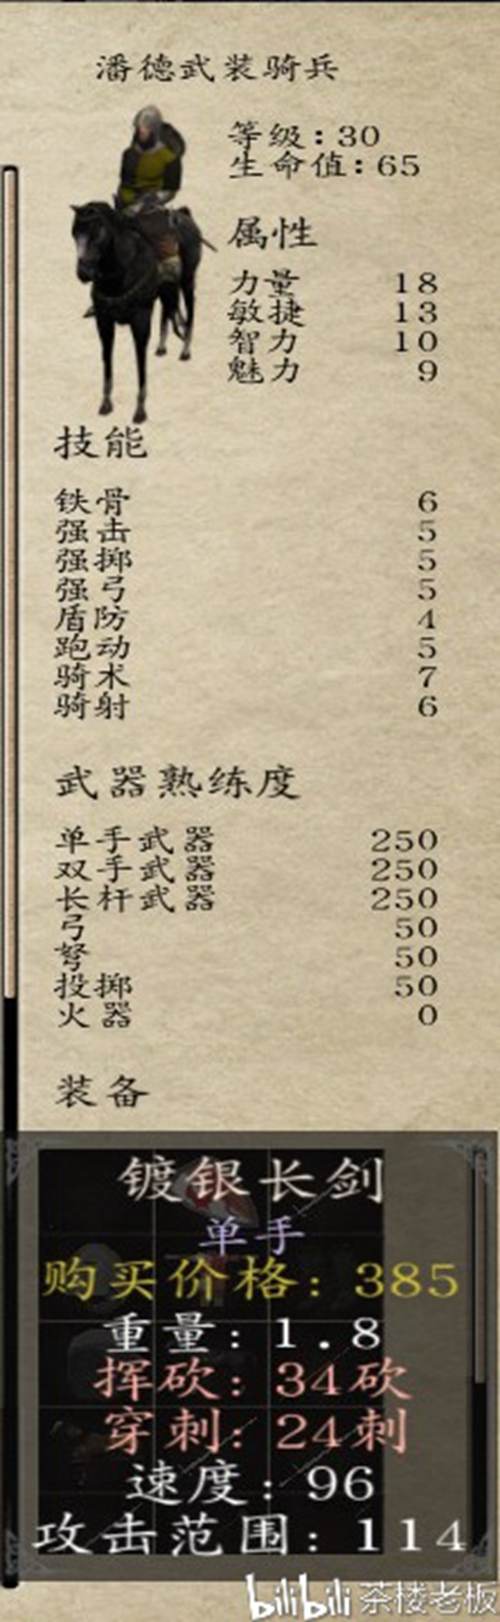 潘德武装骑兵
等级：30
生命值：65
属性
力量 18
敏捷 13
智力 10
魅力 9
技能
铁骨 6
强击 5
强掷 5
强弓 5
盾防 4
跑动 5
骑术 7
骑射 6
武器熟练度
单手武器 250
双手武器 250
长杆武器 250
弓 50
弩 50
投掷 50
火器 0
装备
镀银长剑
单手
购买价格：385
重量：1.8
挥砍：34砍
穿刺：24刺
速度：96
攻击范围：114
bilibili 茶楼老板